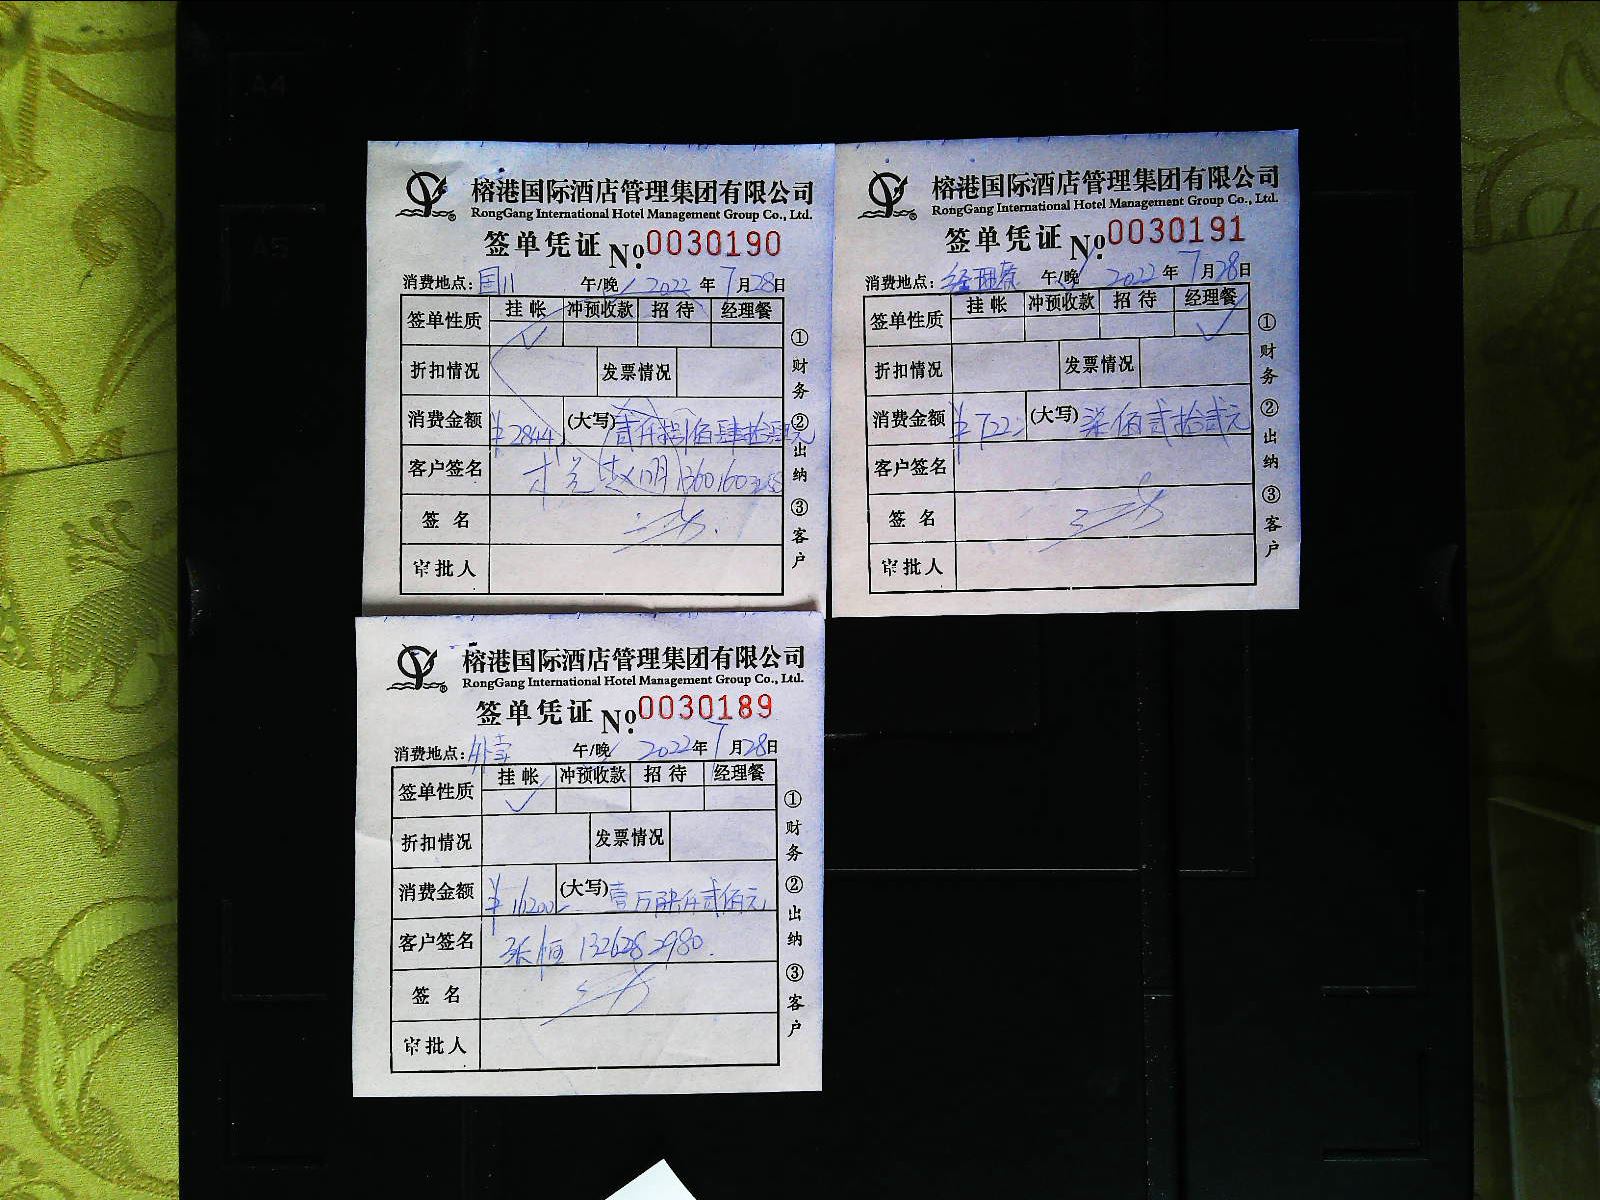 A4
A5
榕港国际酒店管理集团有限公司
RongGang International Hotel Management Group Co., Ltd.
签单凭证 No.0030190
消费地点: 午/晚 2022年7月28日
签单性质 挂帐 冲预收款 招待 经理餐
折扣情况 发票情况
消费金额 ¥2844 (大写) 贰仟捌佰肆拾肆元
客户签名 赵明
签名
审批人
①财务 ②出纳 ③客户
榕港国际酒店管理集团有限公司
RongGang International Hotel Management Group Co., Ltd.
签单凭证 No.0030191
消费地点:经理餐 午/晚 2022年7月28日
签单性质 挂帐 冲预收款 招待 经理餐
折扣情况 发票情况
消费金额 ¥722 (大写) 柒佰贰拾贰元
客户签名
签名
审批人
①财务 ②出纳 ③客户
榕港国际酒店管理集团有限公司
RongGang International Hotel Management Group Co., Ltd.
签单凭证 No.0030189
消费地点:外卖 午/晚 2022年7月28日
签单性质 挂帐 冲预收款 招待 经理餐
折扣情况 发票情况
消费金额 ¥16200 (大写) 壹万陆仟贰佰元
客户签名 张恒 132628 2980
签名
审批人
①财务 ②出纳 ③客户